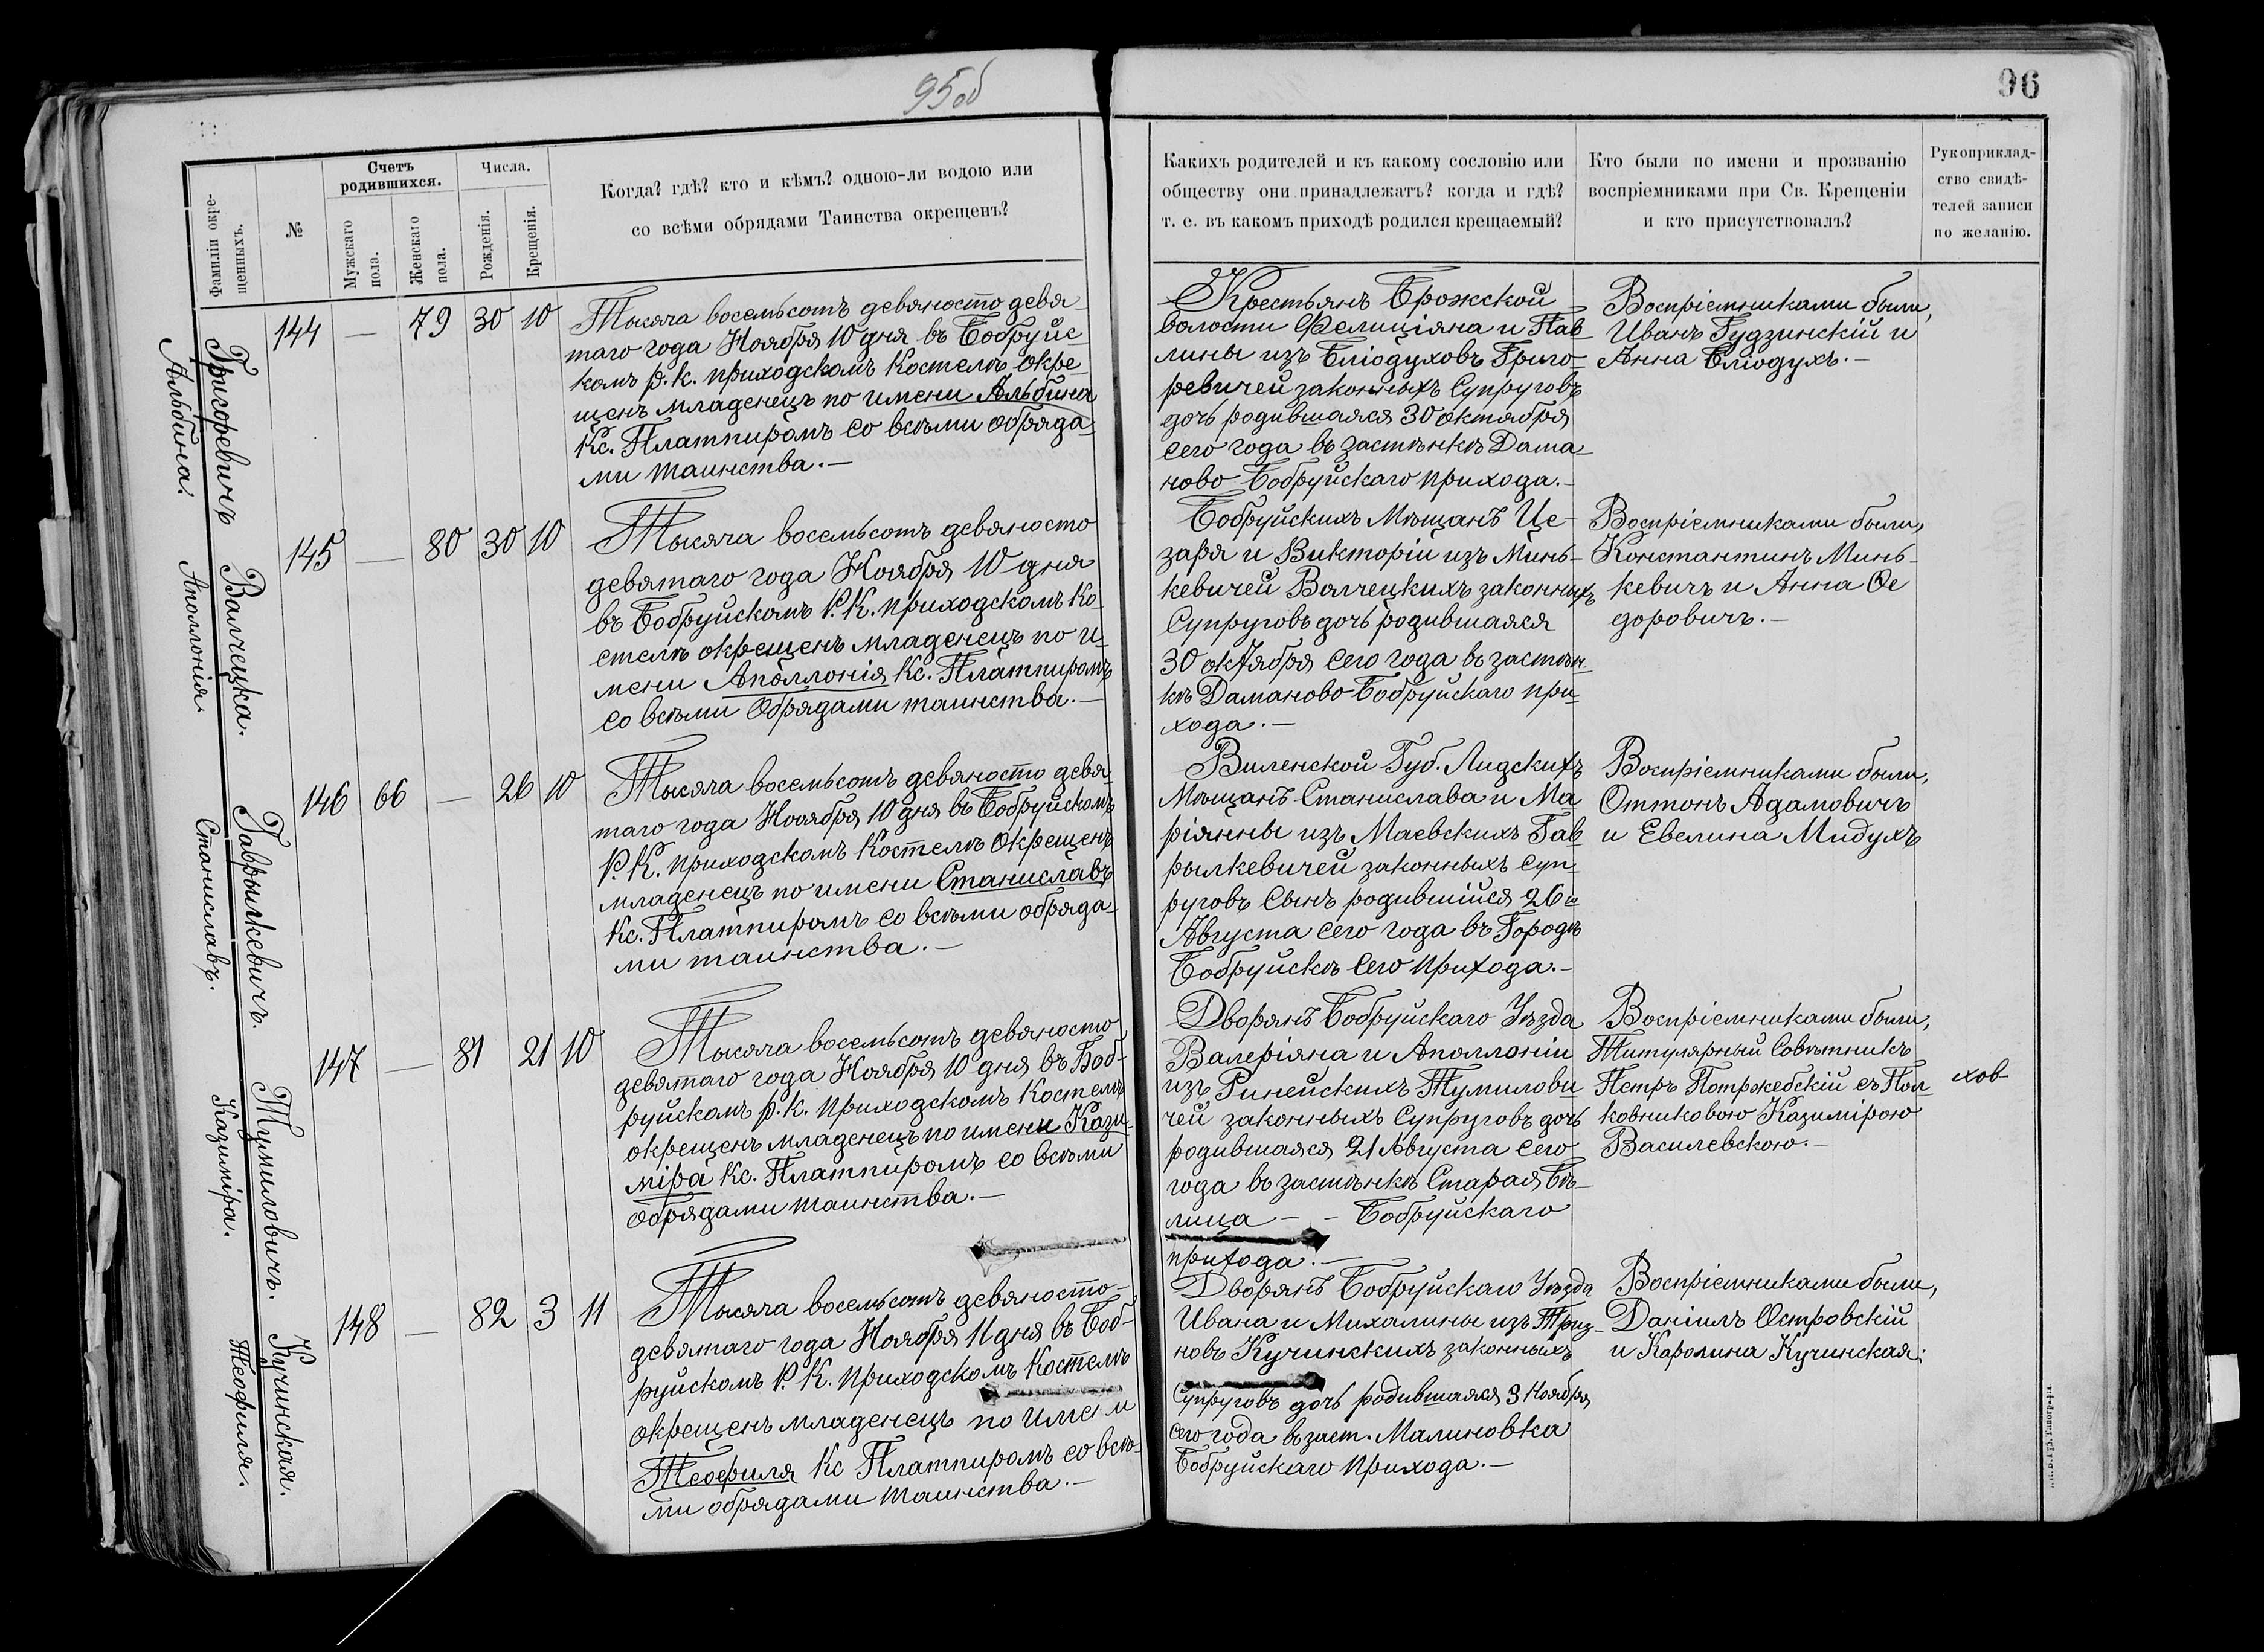 95об
96
Фамиліи окре-
щенныхъ.
№
Счетъ
родившихся.
Мужскаго
пола.
Женскаго
пола.
Числа.
Рожденія.
Крещенія.
Когда? гдѣ? кто и кѣмъ? одною-ли водою или
со всѣми обрядами Таинства окрещенъ?
Какихъ родителей и къ какому сословію или
обществу они принадлежатъ? когда и гдѣ?
т. е. въ какомъ приходѣ родился крещаемый?
Кто были по имени и прозванію
воспріемниками при Св. Крещеніи
и кто присутствовалъ?
Рукоприклад-
ство свидѣ-
телей записи
по желанію.
Григоревичъ
Альбина.
144 — 79 30 10
Тысяча восемьсотъ девяносто девя-
таго года Ноября 10 дня въ Бобруйс-
комъ р. к. приходскомъ Костелѣ окре-
щенъ младенецъ по имени Альбина
Кс. Платпиромъ со всѣми обряда-
ми таинства. —
Крестьянъ Брожской
волости Фелиціяна и Пав-
лины изъ Бліодуховъ Григо-
ревичей законныхъ Супруговъ
дочь родившаяся 30 октября
сего года въ застѣнкѣ Дама-
ново Бобруйскаго прихода. —
Воспріемниками были,
Иванъ Гудзинскій и
Анна Бліодухъ. —
Валчецка.
Аполлонія.
145 — 80 30 10
Тысяча восемьсотъ девяносто
девятаго года Ноября 10 дня
въ Бобруйскомъ Р. К. приходскомъ Ко-
стелѣ окрещенъ младенецъ по и-
мени Аполлонія Кс. Платпиромъ
со всѣми обрядами таинства. —
Бобруйскихъ Мѣщанъ Це-
заря и Викторіи изъ Минь-
кевичей Валчецкихъ законныхъ
Супруговъ дочь родившаяся
30 октября сего года въ застѣн-
кѣ Даманово Бобруйскаго при-
хода. —
Воспріемниками были,
Константинъ Минь-
кевичъ и Анна Фе
доровичъ. —
Гаврылкевичъ.
Станиславъ.
146 66 — 26 10
Тысяча восемьсотъ девяносто девя-
таго года Ноября 10 дня въ Бобруйскомъ
Р. К. приходскомъ Костелѣ Окрещенъ
младенецъ по имени Станиславъ
Кс. Платпиромъ со всѣми обряда-
ми таинства. —
Виленской Губ. Лидскихъ
Мѣщанъ Станислава и Ма-
ріянны изъ Маевскихъ Гав-
рылкевичей законныхъ Суп-
руговъ Сынъ родившійся 26 го
Августа сего года въ Городѣ
Бобруйскѣ сего прихода. —
Воспріемниками были,
Оттонъ Адамовичъ
и Евелина Мидухъ
Тумиловичъ.
Казиміра.
147 — 81 21 10
Тысяча восемьсотъ девяносто
девятаго года Ноября 10 дня въ Боб-
руйскомъ р. к. приходскомъ Костелѣ
окрещенъ младенецъ по имени Кази-
міра Кс. Платпиромъ со всѣми
обрядами таинства. —
Дворянъ Бобруйскаго Уѣзда
Валеріяна и Аполлоніи
изъ Ринейскихъ Тумилови-
чей законныхъ Супруговъ дочь
родившаяся 21 Августа сего
года въ застѣнкѣ Старая Бѣ-
лица — - Бобруйскаго
прихода. —
Воспріемниками были,
Титулярный Совѣтникъ
Петръ Потржебскій съ Пол-
ковниковою Казимірою
Василевскою. —
хов
Кучинская.
Теофиля.
148 — 82 3 11
Тысяча восемьсотъ девяносто-
девятаго года Ноября 11 дня въ Боб-
руйскомъ Р. К. приходскомъ Костелѣ
окрещенъ младенецъ по имени
Теофиля Кс Платпиромъ со всѣ-
ми обрядами таинства. —
Дворянъ Бобруйскаго Уѣзда
Ивана и Михалины изъ Триз-
новъ Кучинскихъ законныхъ
Супруговъ дочь родившаяся 3 Ноября
сего года въ заст. Малиновка
Бобруйскаго прихода. —
Воспріемниками были,
Даніилъ Островскій
и Каролина Кучинская.